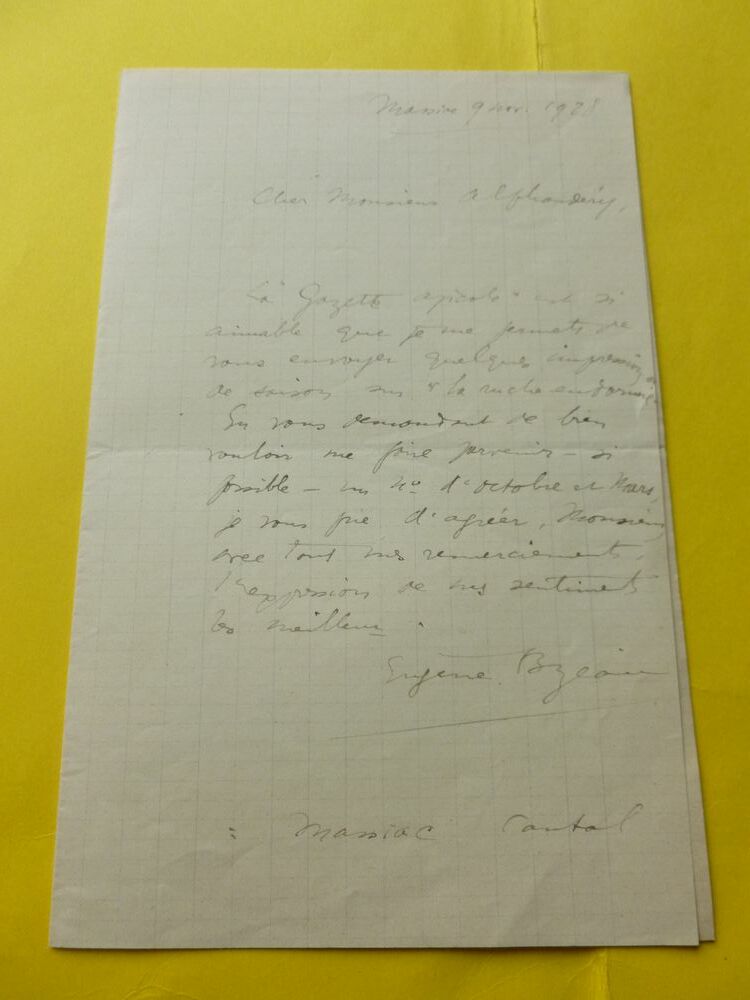 Massiac 9 nov. 1928
Cher Monsieur Alphandéry,
La "Gazette apicole" est si
aimable que je me permets de
vous envoyer quelques impressions
de saison sur "la ruche endormie"
En vous demandant de bien
vouloir me faire parvenir - si
possible - un no d'octobre et Mars,
je vous prie d'agréer, Monsieur,
avec tous mes remerciements,
l'expression de mes sentiments
les meilleurs.
Eugène Bizeau
: Massiac Cantal